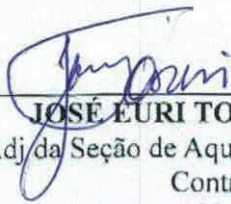 JOSÉ EURI TO
Adj da Seção de Aqu
Contr